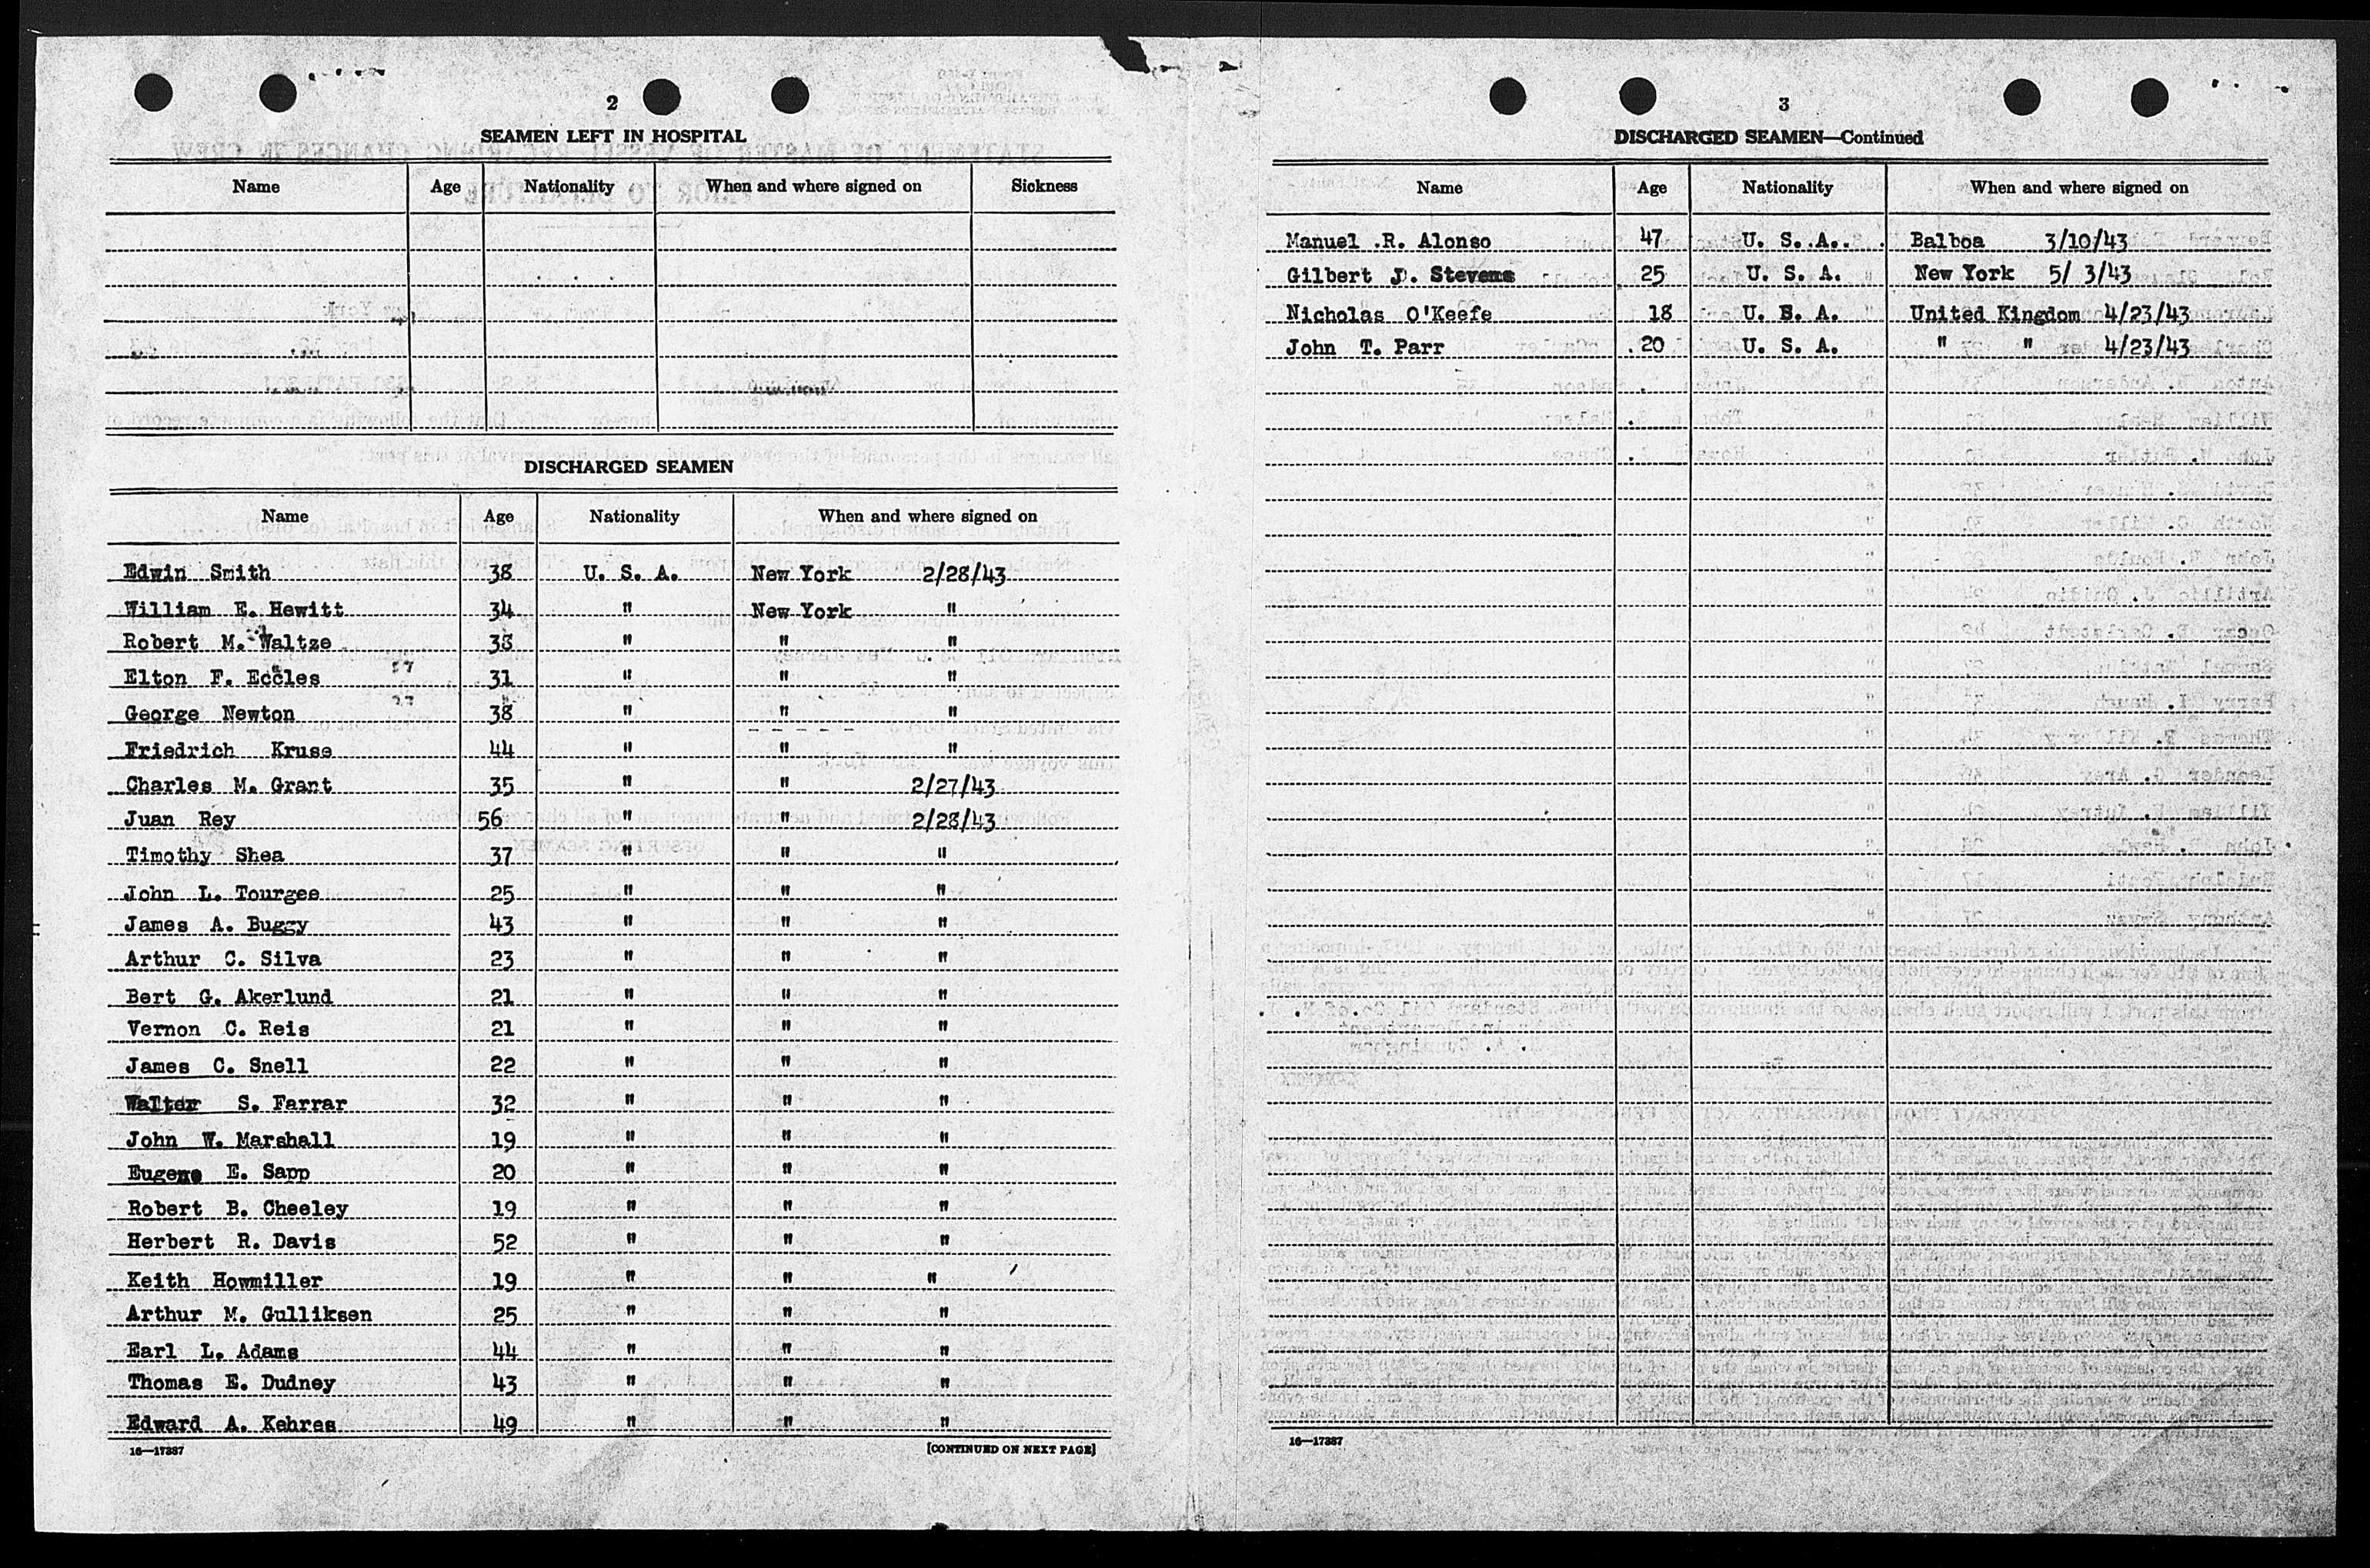 2
SEAMEN LEFT IN HOSPITAL
Name Age Nationality When and where signed on Sickness
DISCHARGED SEAMEN
Name Age Nationality When and where signed on
Edwin Smith 38 U. S. A. New York 2/28/43
William E. Hewitt 34 " New York "
Robert M. Waltze 38 " " "
Elton F. Eccles 31 " " "
George Newton 38 " " "
Friedrich Kruse 44 " " "
Charles M. Grant 35 " " 2/27/43
Juan Rey 56 " " 2/28/43
Timothy Shea 37 " " "
John L. Tourgee 25 " " "
James A. Buggy 43 " " "
Arthur C. Silva 23 " " "
Bert G. Akerlund 21 " " "
Vernon C. Reis 21 " " "
James C. Snell 22 " " "
Walter S. Farrar 32 " " "
John W. Marshall 19 " " "
Eugene E. Sapp 20 " " "
Robert B. Cheeley 19 " " "
Herbert R. Davis 52 " " "
Keith Howmiller 19 " " "
Arthur M. Gulliksen 25 " " "
Earl L. Adams 44 " " "
Thomas E. Dudney 43 " " "
Edward A. Kehres 49 " " "
16—17387 [CONTINUED ON NEXT PAGE]
3
DISCHARGED SEAMEN—Continued
Name Age Nationality When and where signed on
Manuel R. Alonso 47 U. S. A. Balboa 3/10/43
Gilbert J. Stevens 25 U. S. A. New York 5/ 3/43
Nicholas O'Keefe 18 U. S. A. United Kingdom 4/23/43
John T. Parr 20 U. S. A. " " 4/23/43
16—17387